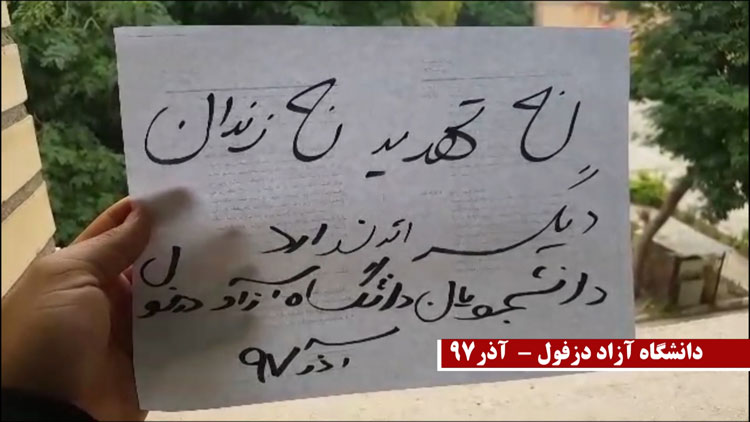 نه تهدید نه زندان
دیگر اثر ندارد
دانشجویان دانشگاه آزاد دزفول
آذر ۹۷
دانشگاه آزاد دزفول - آذر۹۷